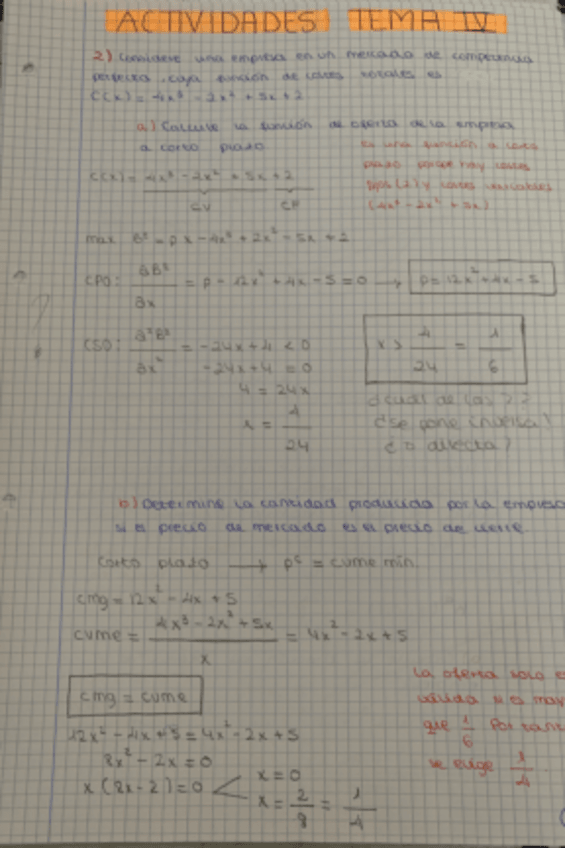 ACTIVIDADES TEMA IV
2) Considere una empresa en un mercado de competencia
perfecta, cuya función de costes totales es
C(x) = 4x³ - 2x² + 5x + 2
a) Calcule la función de oferta de la empresa
a corto plazo
Es una función a corto
plazo porque hay costes
fijos (2) y costes variables
(4x³ - 2x² + 5x)
C(x) = 4x³ - 2x² + 5x + 2
CV CF
max B² = px - 4x³ + 2x² - 5x + 2
CPO: ∂B² / ∂x = p - 12x² + 4x - 5 = 0 → p = 12x² + 4x - 5
CSO: ∂²B² / ∂x² = -24x + 4 < 0
-24x + 4 = 0
4 = 24x
x = 4/24
x > 4/24 = 1/6
¿cual de las 2?
¿se pone inversa?
¿o directa?
b) Determine la cantidad producida por la empresa
si el precio de mercado es el precio de cierre.
Corto plazo → pᶜ = cvme min
cmg = 12x² - 4x + 5
cvme = 4x³ - 2x² + 5x / x = 4x² - 2x + 5
cmg = cvme
La oferta solo es
válida si es may
que 1/6 Por tant
se exige 1/4.
12x² - 4x + 5 = 4x² - 2x + 5
8x² - 2x = 0
x(8x - 2) = 0 < x = 0
x = 2/8 = 1/4